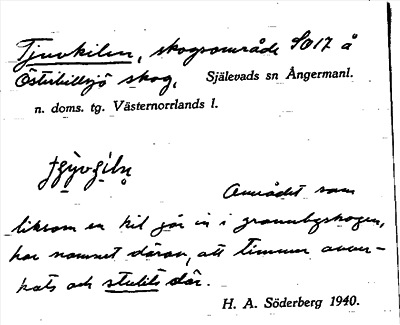 Tjuvkilen, skogsområde SO17 å
Österbillsjö skog, Själevads sn Ångermanl.
n. doms. tg. Västernorrlands l.
Området som
liksom en kil går in i grannbyskogen,
har namnet därav, att timmer avver-
kats och stulits där.
H. A. Söderberg 1940.